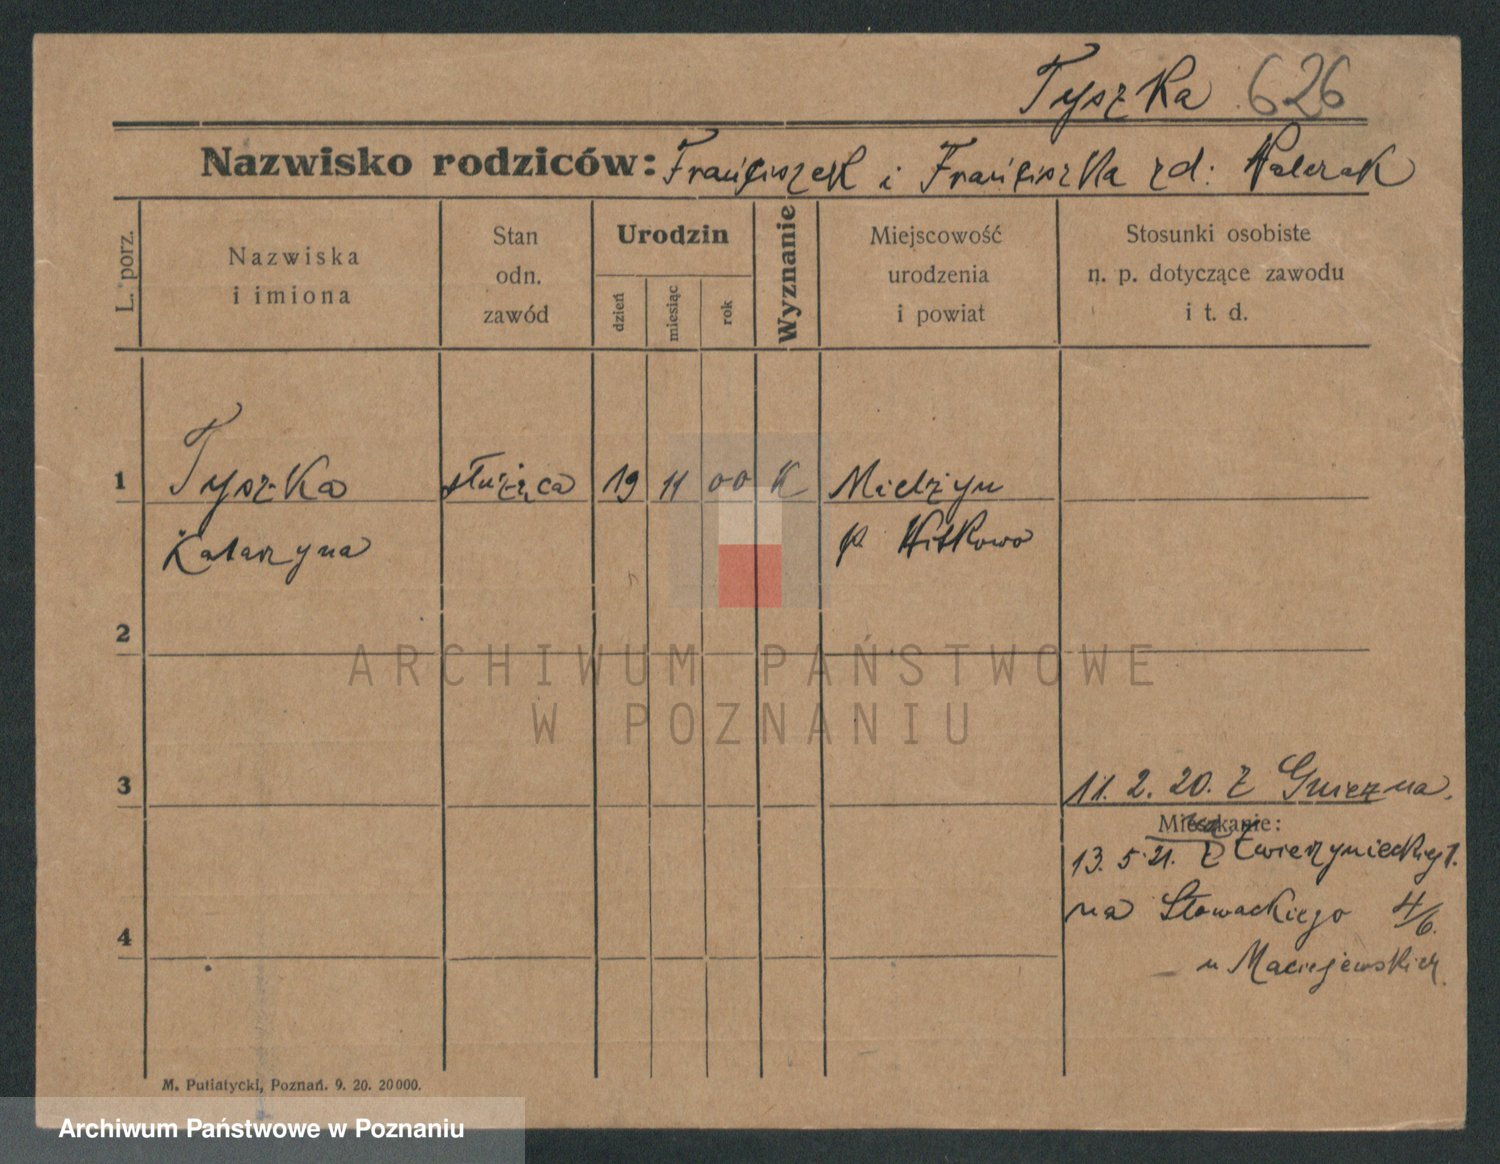 Tyszka 626
Nazwisko rodziców: Franciszek i Franciszka zd: Walczak
L. porz.
Nazwiska
i imiona
Stan
odn.
zawód
Urodzin
dzień
miesiąc
rok
Wyznanie
Miejscowość
urodzenia
i powiat
Stosunki osobiste
n. p. dotyczące zawodu
i t. d.
1 Tyszka służąca 19 11 00 K Miedzyn
Katarzyna p. Witkowo
2
ARCHIWUM PAŃSTWOWE
W POZNANIU
3 11. 2. 20. Z Gniezna.
Mieszkanie:
13. 5 21. Z Zwierzynieckiej 1.
na Słowackiego 4/6.
4
u Maciejewskich
M. Putiatycki, Poznań. 9. 20. 20000.
Archiwum Państwowe w Poznaniu